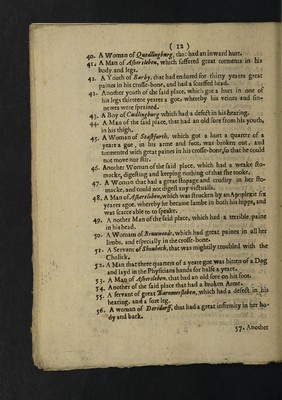 ( 12 )
40. A Woman of Quedlingburg, that had an inward hurt.
41. A Man of Aſtersleben, which ſuffered great torments in his
body and legs.
42. A Youth of Barby, that had endured for thirty yeares great
paines in his croſſe-bone, and had a ſcurffed head.
42. Another youth of the ſaid place, which got a hurt in one of
his legs thirteene yeares agoe, whereby his veines and ſin-
newes were ſprained.
43. A Boy of Cudlingburg which had a defect in his hearing.
44. A Man of the ſaid place, that had an old ſore from his youth,
in his thigh.
45. A Woman of Staſsfurth, which got a hurt a quarter of a
yeare agoe, in his arme and foot, was broken out, and
tormented with great paines in his croſſe-bone, ſo that he could
not move nor ſtir.
46. Another Woman of the ſaid place, which had a weake ſto-
macke, digeſting and keeping nothing of that ſhe tooke.
47. A Woman that had a great ſtopage and crudity in her ſto-
macke, and could not digeſt any victualls.
48. A Man of Aſtersleben, which was ſtrucken by an Apoplexie ſix
yeares agoe, whereby he became lambe in both his hipps, and
was ſcarce able to to ſpeake.
49. Another Man of the ſaid place, which had a terrible paine
in his head.
50. A Womam of Brunwends, which had great paines in all her
limbs, and eſpecially in the croſſe-bone.
51. A Servant of Shonbeck, that was mightily troubled with the
Cholick.
52. A Man that three quarters of a yeare agoe was bitten of a Dog
and layd in the Phyſicians hands for halfe a yeare.
53. A Man of Aſtersleben, that had an old ſore on his foot.
54. Another of the ſaid place that had a broken Arme.
55. A ſervant of great Barumersleben, which had a defect in his
hearing, and a ſore leg.
56. A woman of Derſdorff, that had a great infirmity in her bo-
dy and back.
57. Another